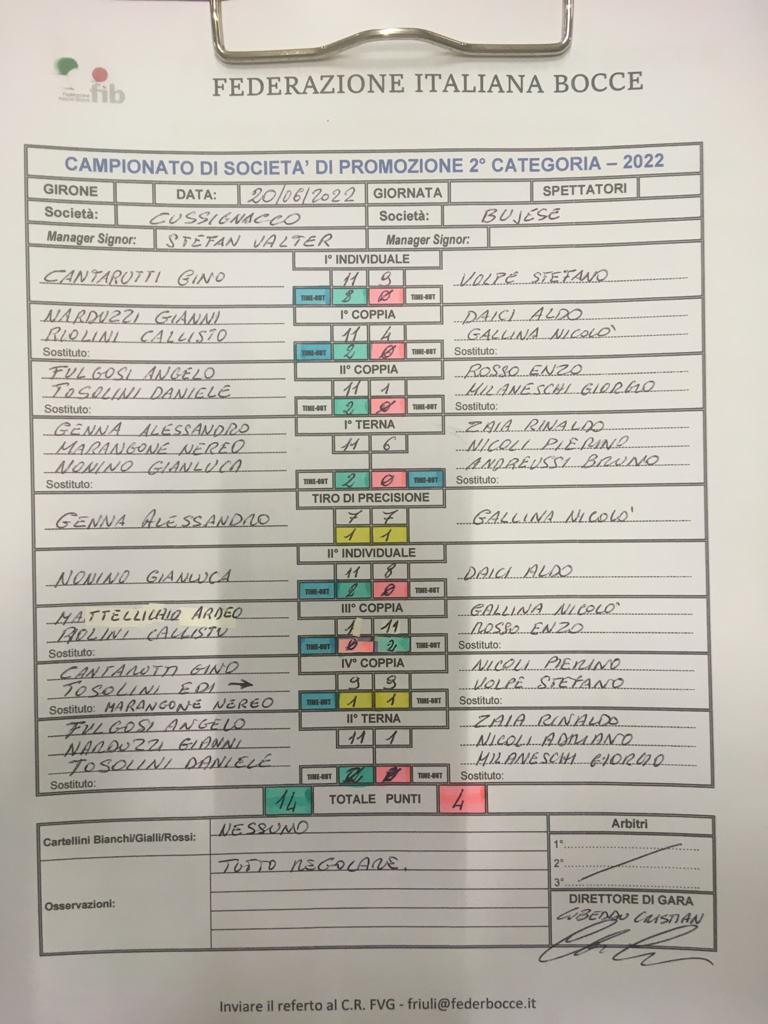 fib
FEDERAZIONE ITALIANA BOCCE
CAMPIONATO DI SOCIETA' DI PROMOZIONE 2° CATEGORIA – 2022
GIRONE DATA: 20/06/2022 GIORNATA SPETTATORI
Società: CUSSIGNACCO Società: BUJESE
Manager Signor: STEFAN VALTER Manager Signor:
I° INDIVIDUALE
CANTARUTTI GINO 11 9 VOLPE STEFANO
TIME-OUT 2 0 TIME-OUT
I° COPPIA
NARDUZZI GIANNI DAICI ALDO
RIOLINI CALLISTO 11 4 GALLINA NICOLO'
Sostituto: TIME-OUT 2 0 TIME-OUT Sostituto:
II° COPPIA
FULGOSI ANGELO ROSSO ENZO
TOSOLINI DANIELE 11 1 MILANESCHI GIORGIO
Sostituto: TIME-OUT 2 0 TIME-OUT Sostituto:
I° TERNA
GENNA ALESSANDRO ZAIA RINALDO
MARANGONE NEREO 11 6 NICOLI PIERINO
NONINO GIANLUCA ANDREUSSI BRUNO
Sostituto: TIME-OUT 2 0 TIME-OUT Sostituto:
TIRO DI PRECISIONE
GENNA ALESSANDRO 7 7 GALLINA NICOLO'
1 1
II° INDIVIDUALE
NONINO GIANLUCA 11 8 DAICI ALDO
TIME-OUT 2 0 TIME-OUT
III° COPPIA
MATTELLICHIO ARDEO GALLINA NICOLO'
RIOLINI CALLISTO 1 11 ROSSO ENZO
Sostituto: TIME-OUT 0 2 TIME-OUT Sostituto:
IV° COPPIA
CANTARUTTI GINO NICOLI PIERINO
TOSOLINI EDI → 9 9 VOLPE STEFANO
Sostituto: MARANGONE NEREO TIME-OUT 1 1 TIME-OUT Sostituto:
II° TERNA
FULGOSI ANGELO ZAIA RINALDO
NARDUZZI GIANNI 11 1 NICOLI ADRIANO
TOSOLINI DANIELE MILANESCHI GIORGIO
Sostituto: TIME-OUT 2 0 TIME-OUT Sostituto:
14 TOTALE PUNTI 4
Cartellini Bianchi/Gialli/Rossi: NESSUNO
Arbitri
1°
2°
3°
Osservazioni: TUTTO REGOLARE.
DIRETTORE DI GARA
CUBEDDU CRISTIAN
Inviare il referto al C.R. FVG - friuli@federbocce.it